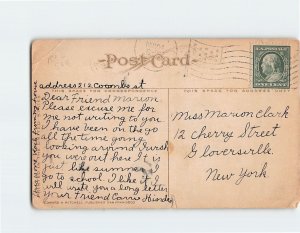 Post Card
THIS SPACE FOR CORRESPONDENCE
THIS SPACE FOR ADDRESS ONLY
address 212 Coombs st
Dear Friend Marion
Please excuse me for
me not writing to you
I have been on the go
all the time going
looking around I wish
you were out here It is
just like summer I
go to school. I like it I
will write you a long letter
Your Friend Carrie
Miss Marion Clark
12 Cherry Street
Gloversville
New York